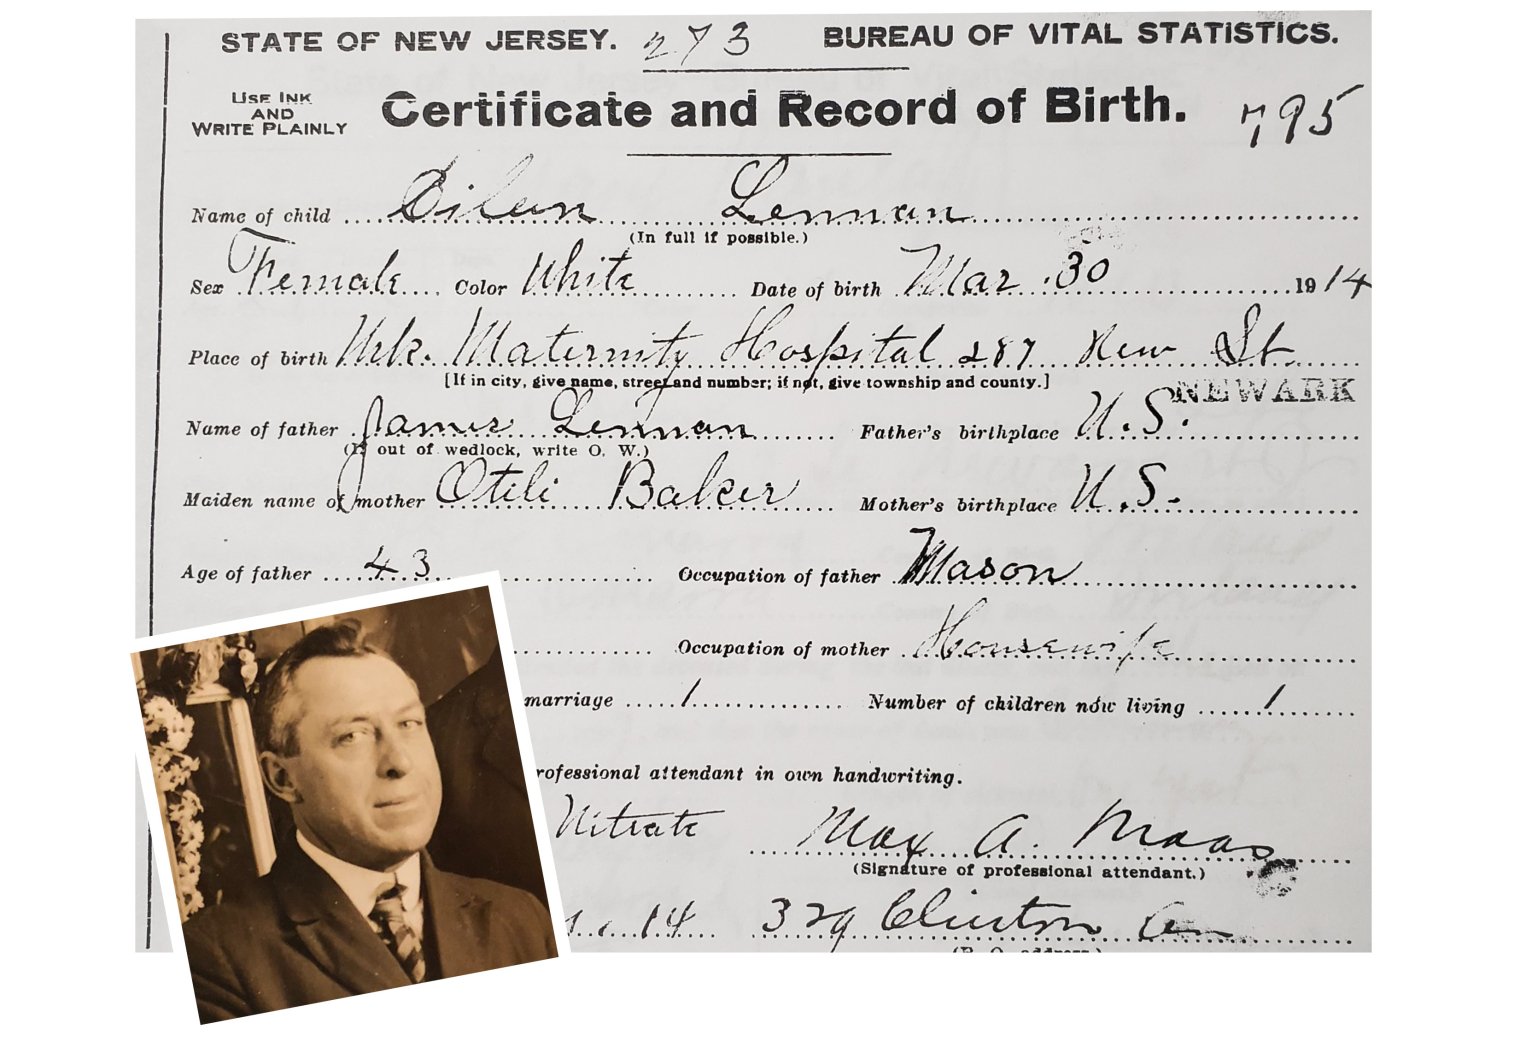 STATE OF NEW JERSEY. 273 BUREAU OF VITAL STATISTICS.
USE INK AND WRITE PLAINLY
Certificate and Record of Birth. 795
Name of child Eileen Lennan
(In full if possible.)
Sex Female Color White Date of birth Mar. 30 1914
Place of birth Nrk. Maternity Hospital 287 New St
[If in city, give name, street and number; if not, give township and county.]
NEWARK
Name of father James Lennan Father's birthplace U.S.
(If out of wedlock, write O. W.)
Maiden name of mother Otili Baker Mother's birthplace U.S.
Age of father 43 Occupation of father Mason
Occupation of mother Housewife
marriage 1 Number of children now living 1
rofessional attendant in own handwriting.
Nitrate Max A. Maas
(Signature of professional attendant.)
14 329 Clinton Av